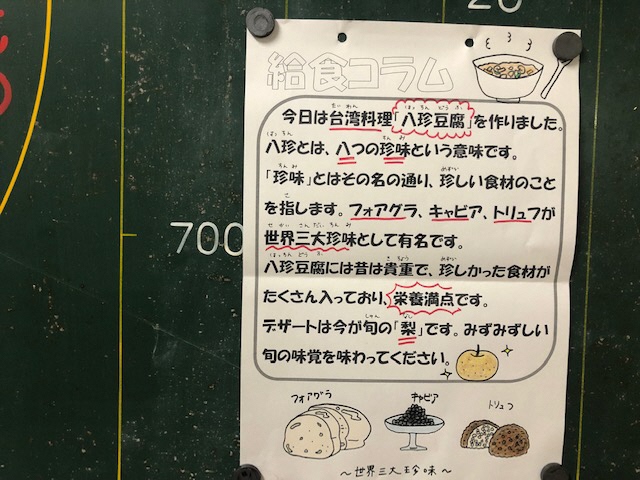 20
700
給食コラム
今日は台湾料理「八珍豆腐」を作りました。
八珍とは、八つの珍味という意味です。
「珍味」とはその名の通り、珍しい食材のこと
を指します。フォアグラ、キャビア、トリュフが
世界三大珍味として有名です。
八珍豆腐には昔は貴重で、珍しかった食材が
たくさん入っており、栄養満点です。
デザートは今が旬の「梨」です。みずみずしい
旬の味覚を味わってください。
フォアグラ
キャビア
トリュフ
~世界三大珍味~